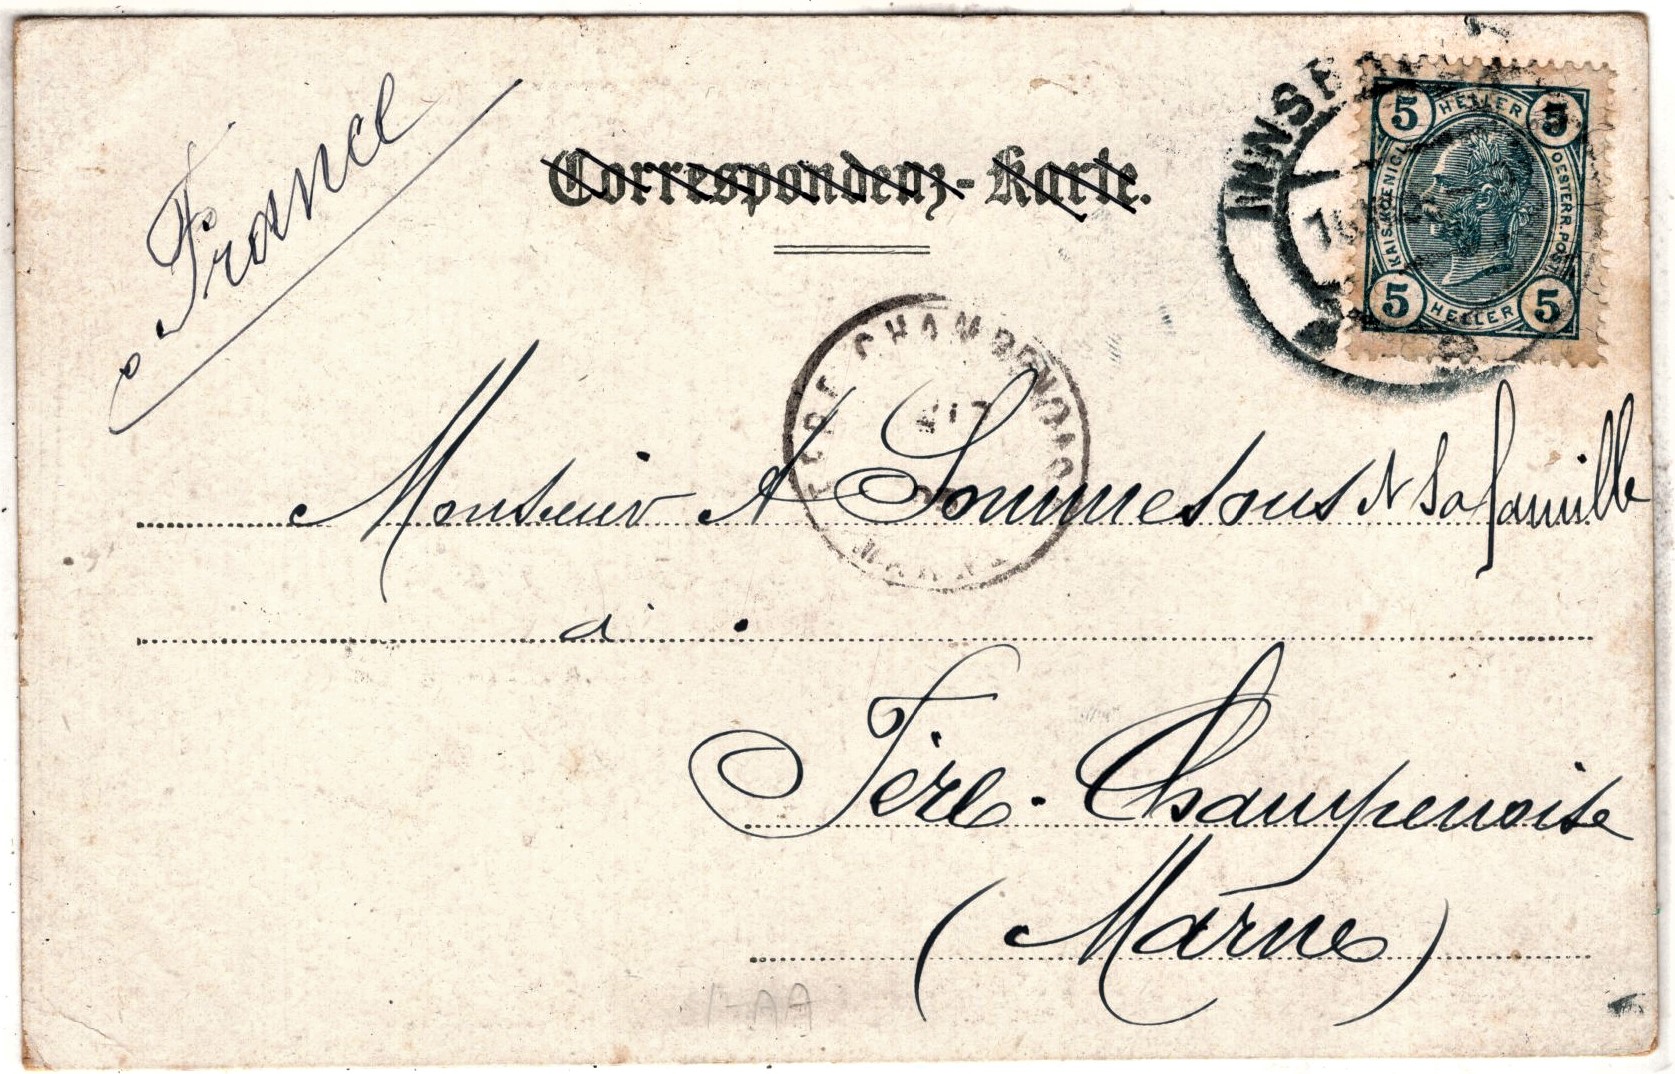 France
Correspondenz-Karte.
INNSB
5 HELLER 5
KAIS. KOENIGL. OESTERR. POST.
5 HELLER 5
FÈRE-CHAMPENOISE
MARNE
Monsieur A Sommesous & Sa famille
à
Fère-Champenoise
(Marne)
1-AA